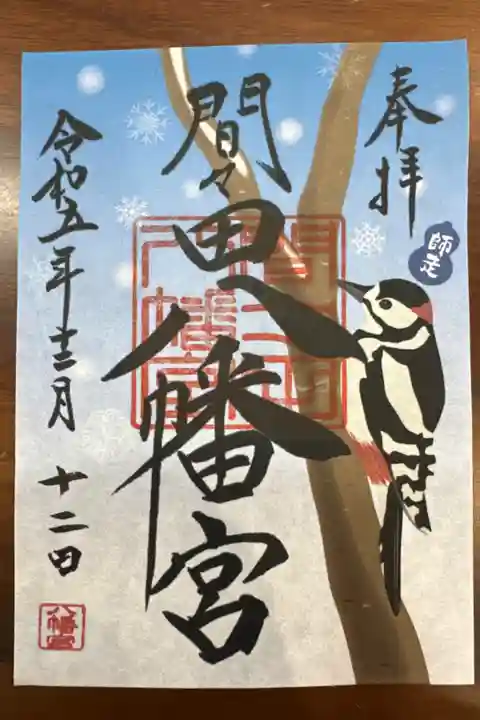 奉拝
師走
間々田八幡宮
令和五年十二月
十二日
八幡宮